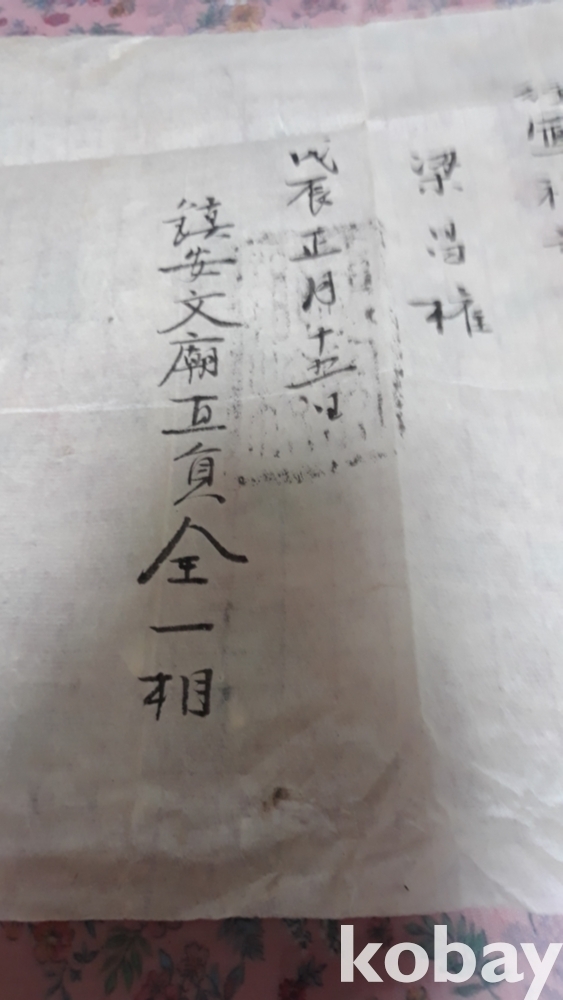 梁昌權
戊辰正月十五日
鎭安文廟直員全一相
kobay